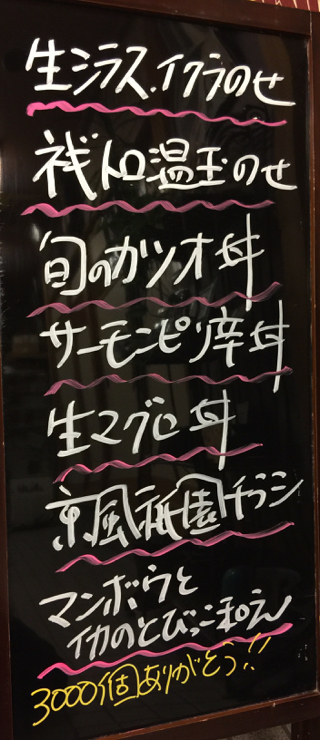 生シラス.イクラのせ
ネギトロ温玉のせ
旬のカツオ丼
サーモンピリ辛丼
生マグロ丼
京風祇園チラシ
マンボウと
イカのとびっこ和え
3000個ありがとう!!